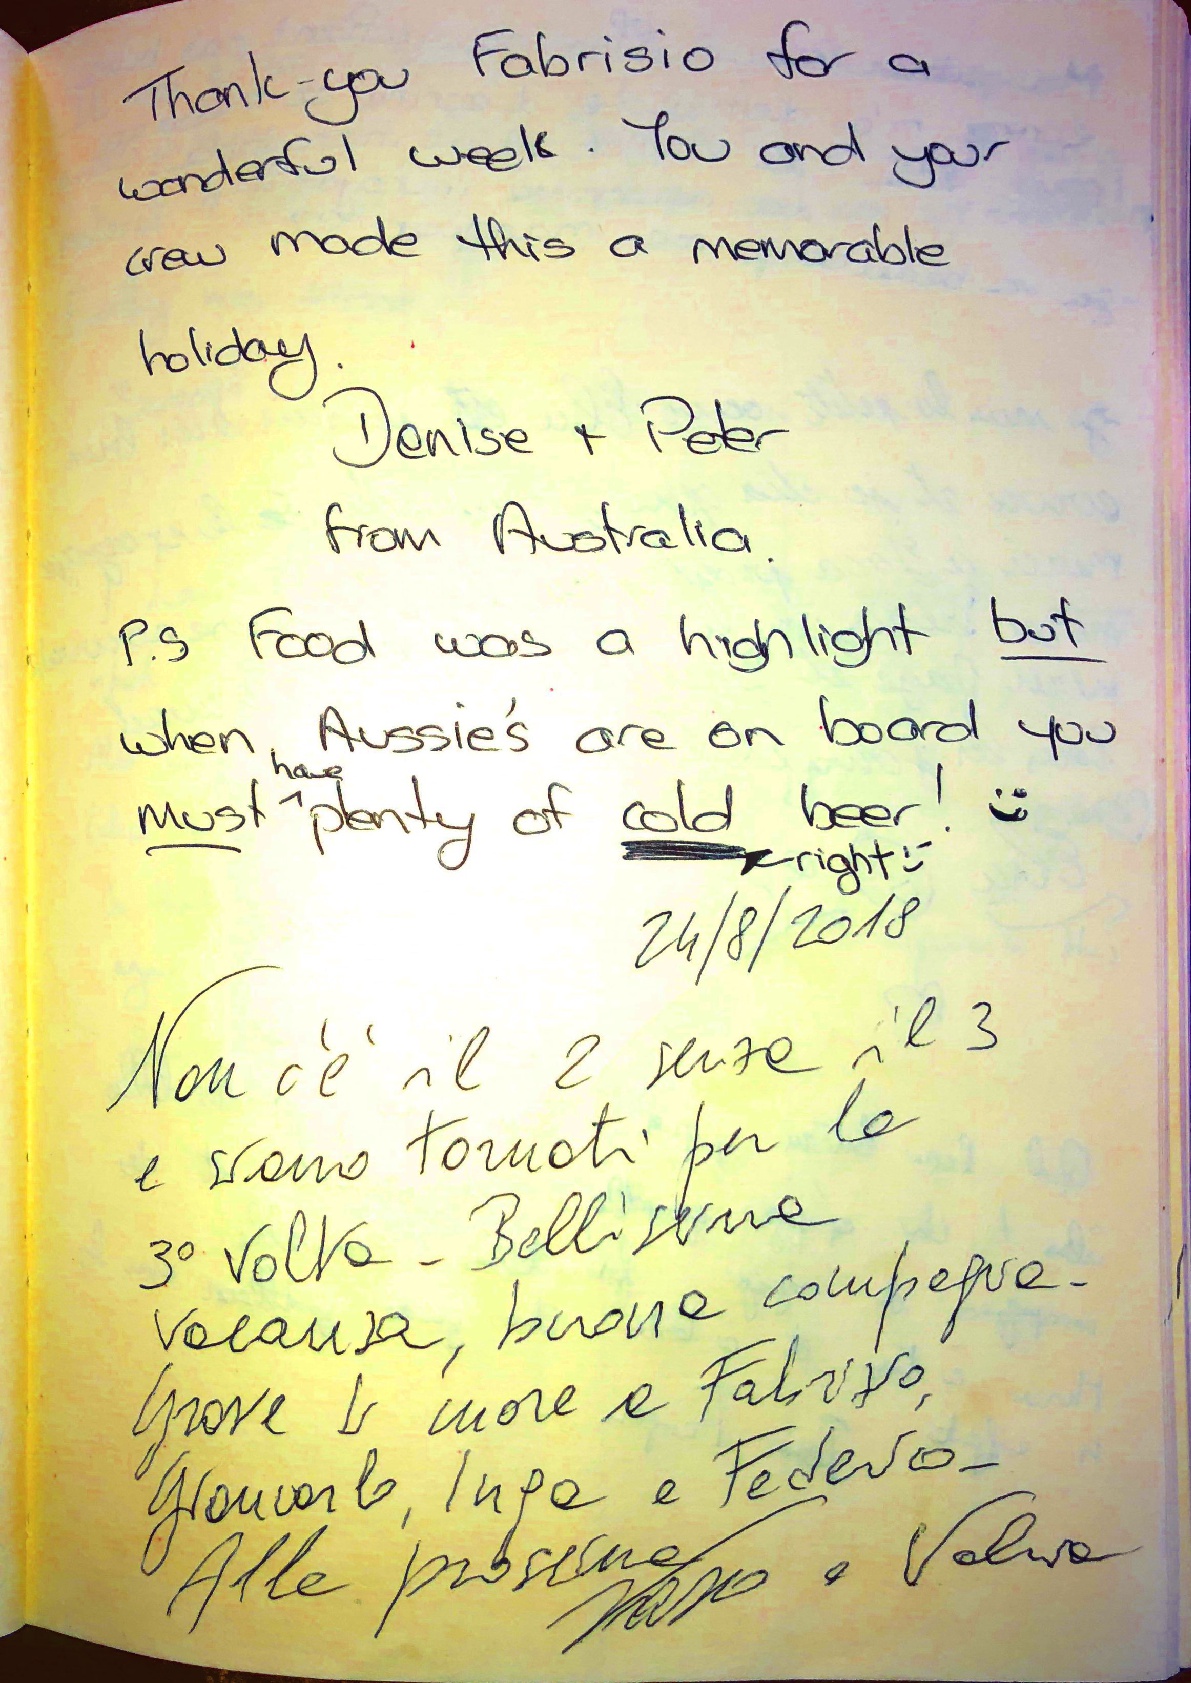 Thank-you Fabrisio for a
wonderful week. You and your
crew made this a memorable
holiday.
Denise + Peter
from Australia.
P.S Food was a highlight but
when Aussie's are on board you
must have plenty of cold beer! :)
right :)
24/8/2018
Non c'è il 2 senza il 3
e siamo tornati per la
3° volta - Bellissima
vacanza, buona compagnia -
Grazie a Fabrizio,
Giancarlo, Inga e Federico -
Alla prossima e